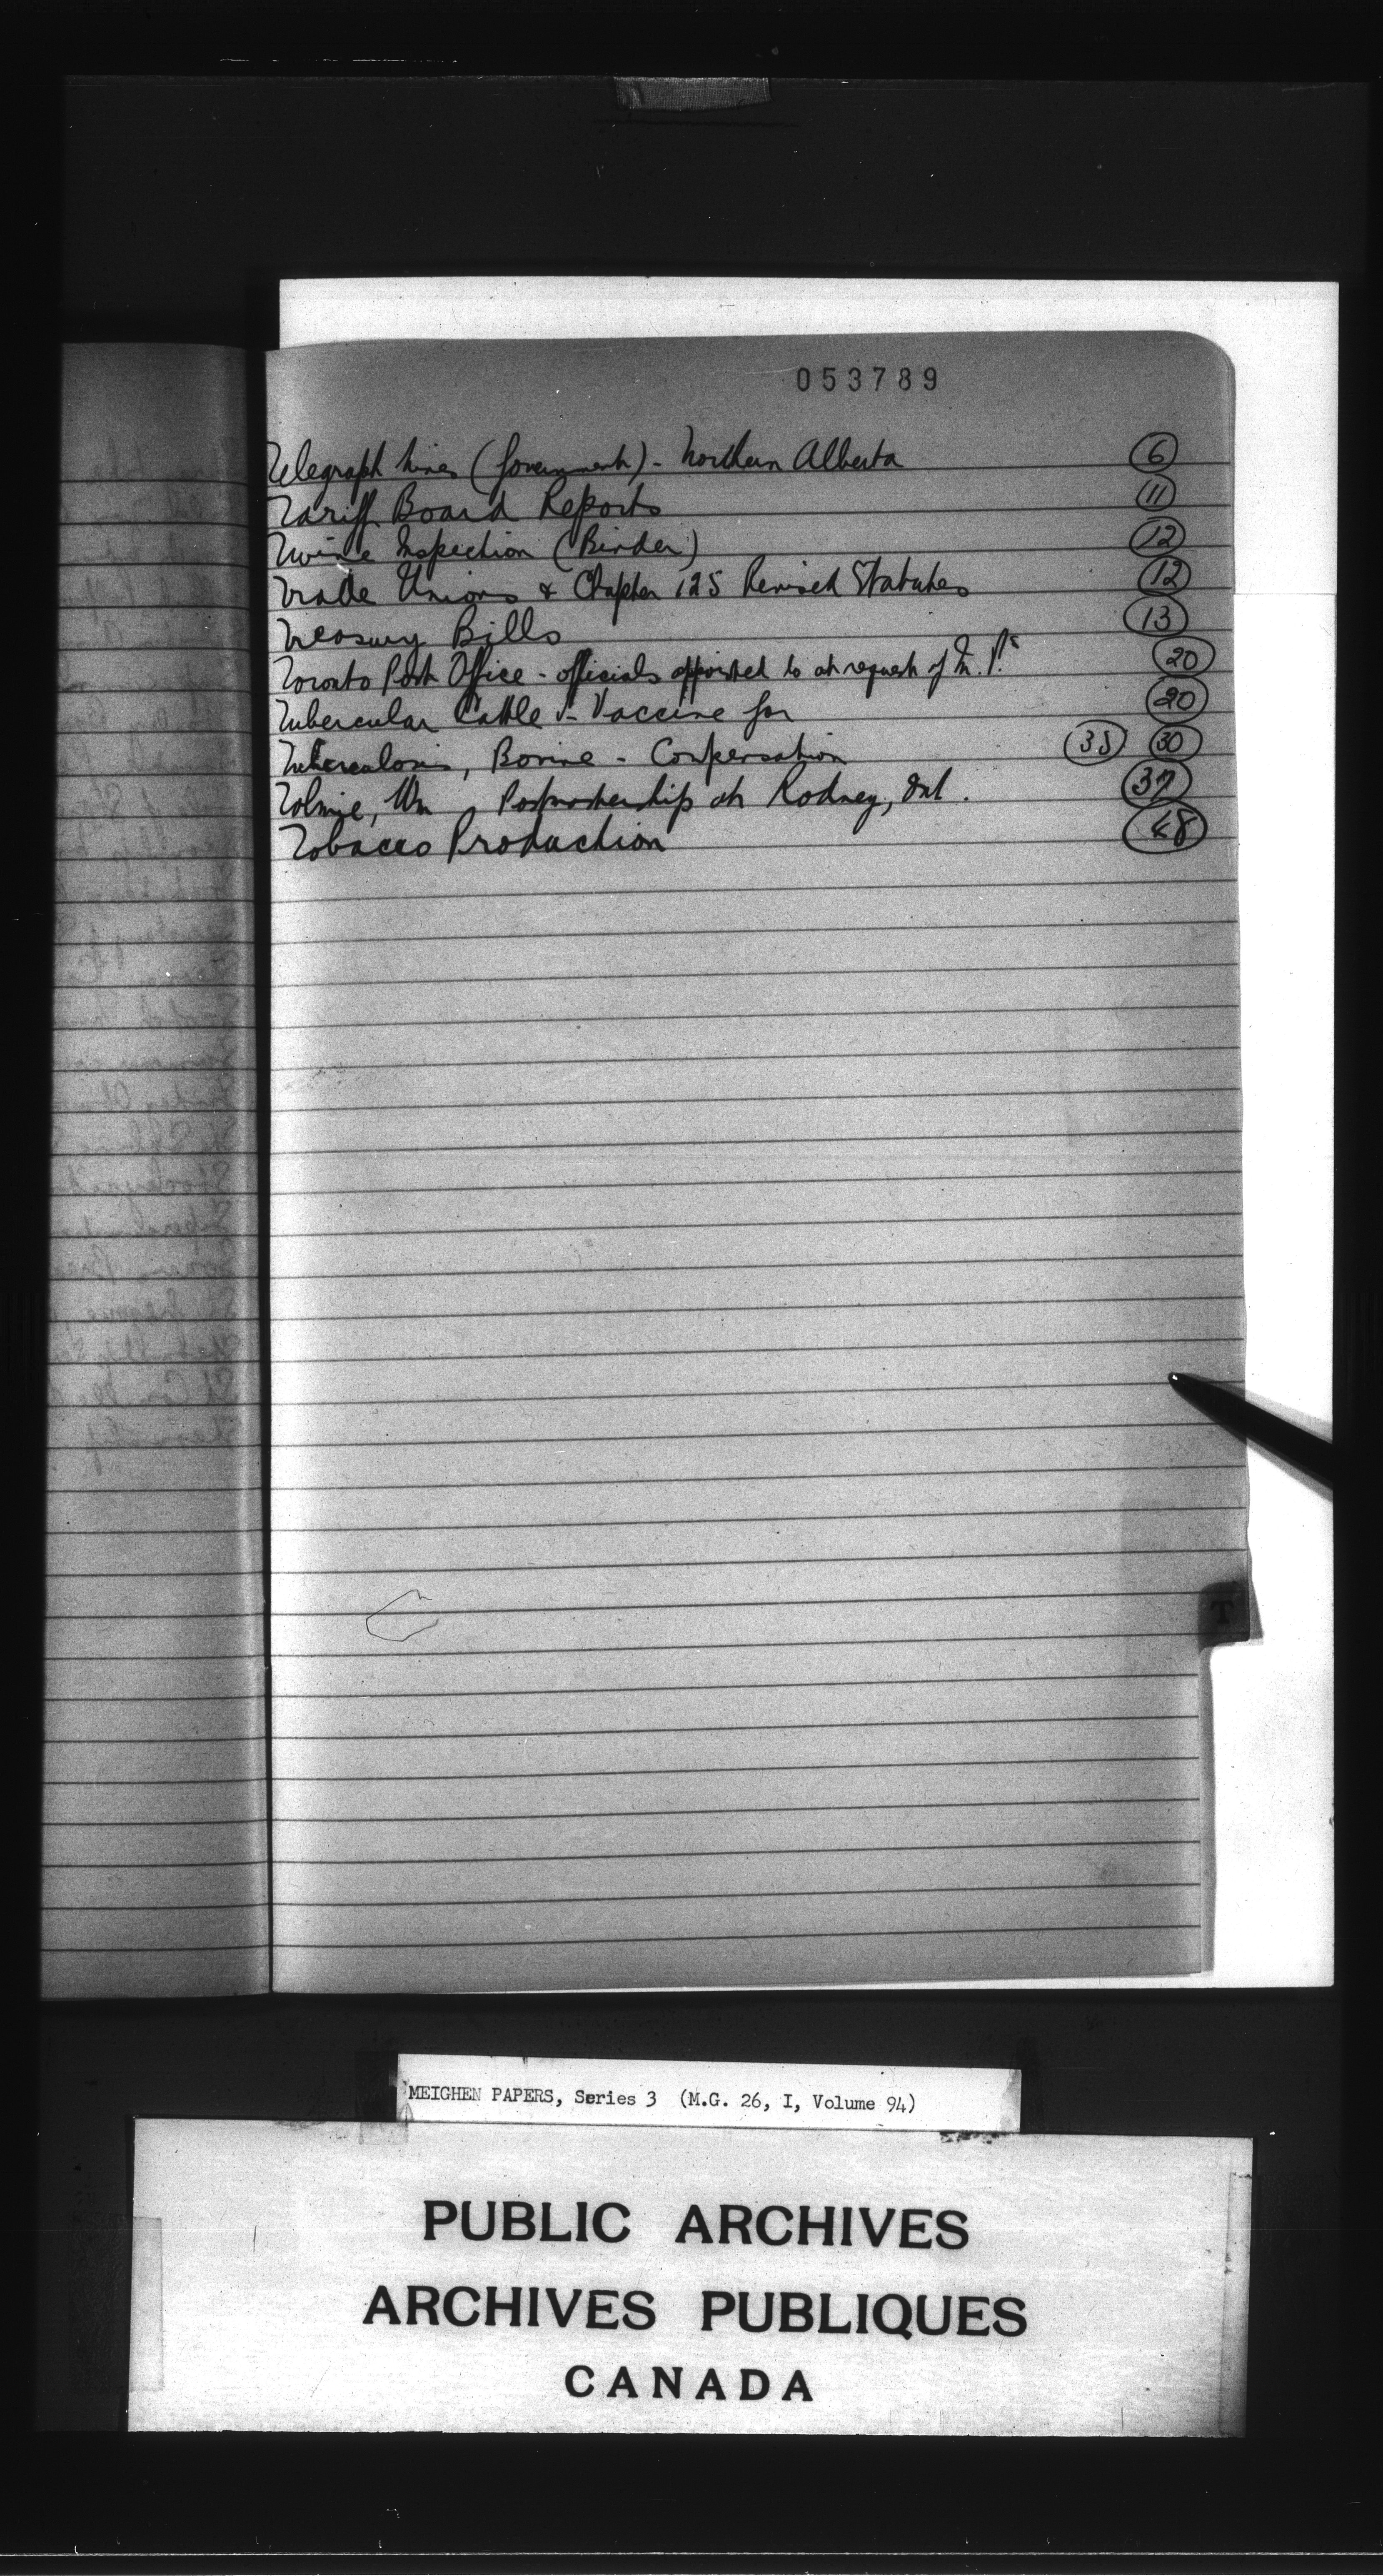 053789
Telegraph Lines (Government) - Northern Alberta 6
Tariff Board Reports 11
Twine Inspection (Binder) 12
Trade Unions & Chapter 125 Revised Statutes 12
Treasury Bills 13
Toronto Post Office - officials appointed to at request of M.P.s 20
Tubercular Cattle - Vaccine for 20
Tuberculosis, Bovine - Compensation 35 30
Tolmie, Wm, Postmastership at Rodney, Ont. 37
Tobacco Production 48
T
MEIGHEN PAPERS, Series 3 (M.G. 26, I, Volume 94)
PUBLIC ARCHIVES
ARCHIVES PUBLIQUES
CANADA